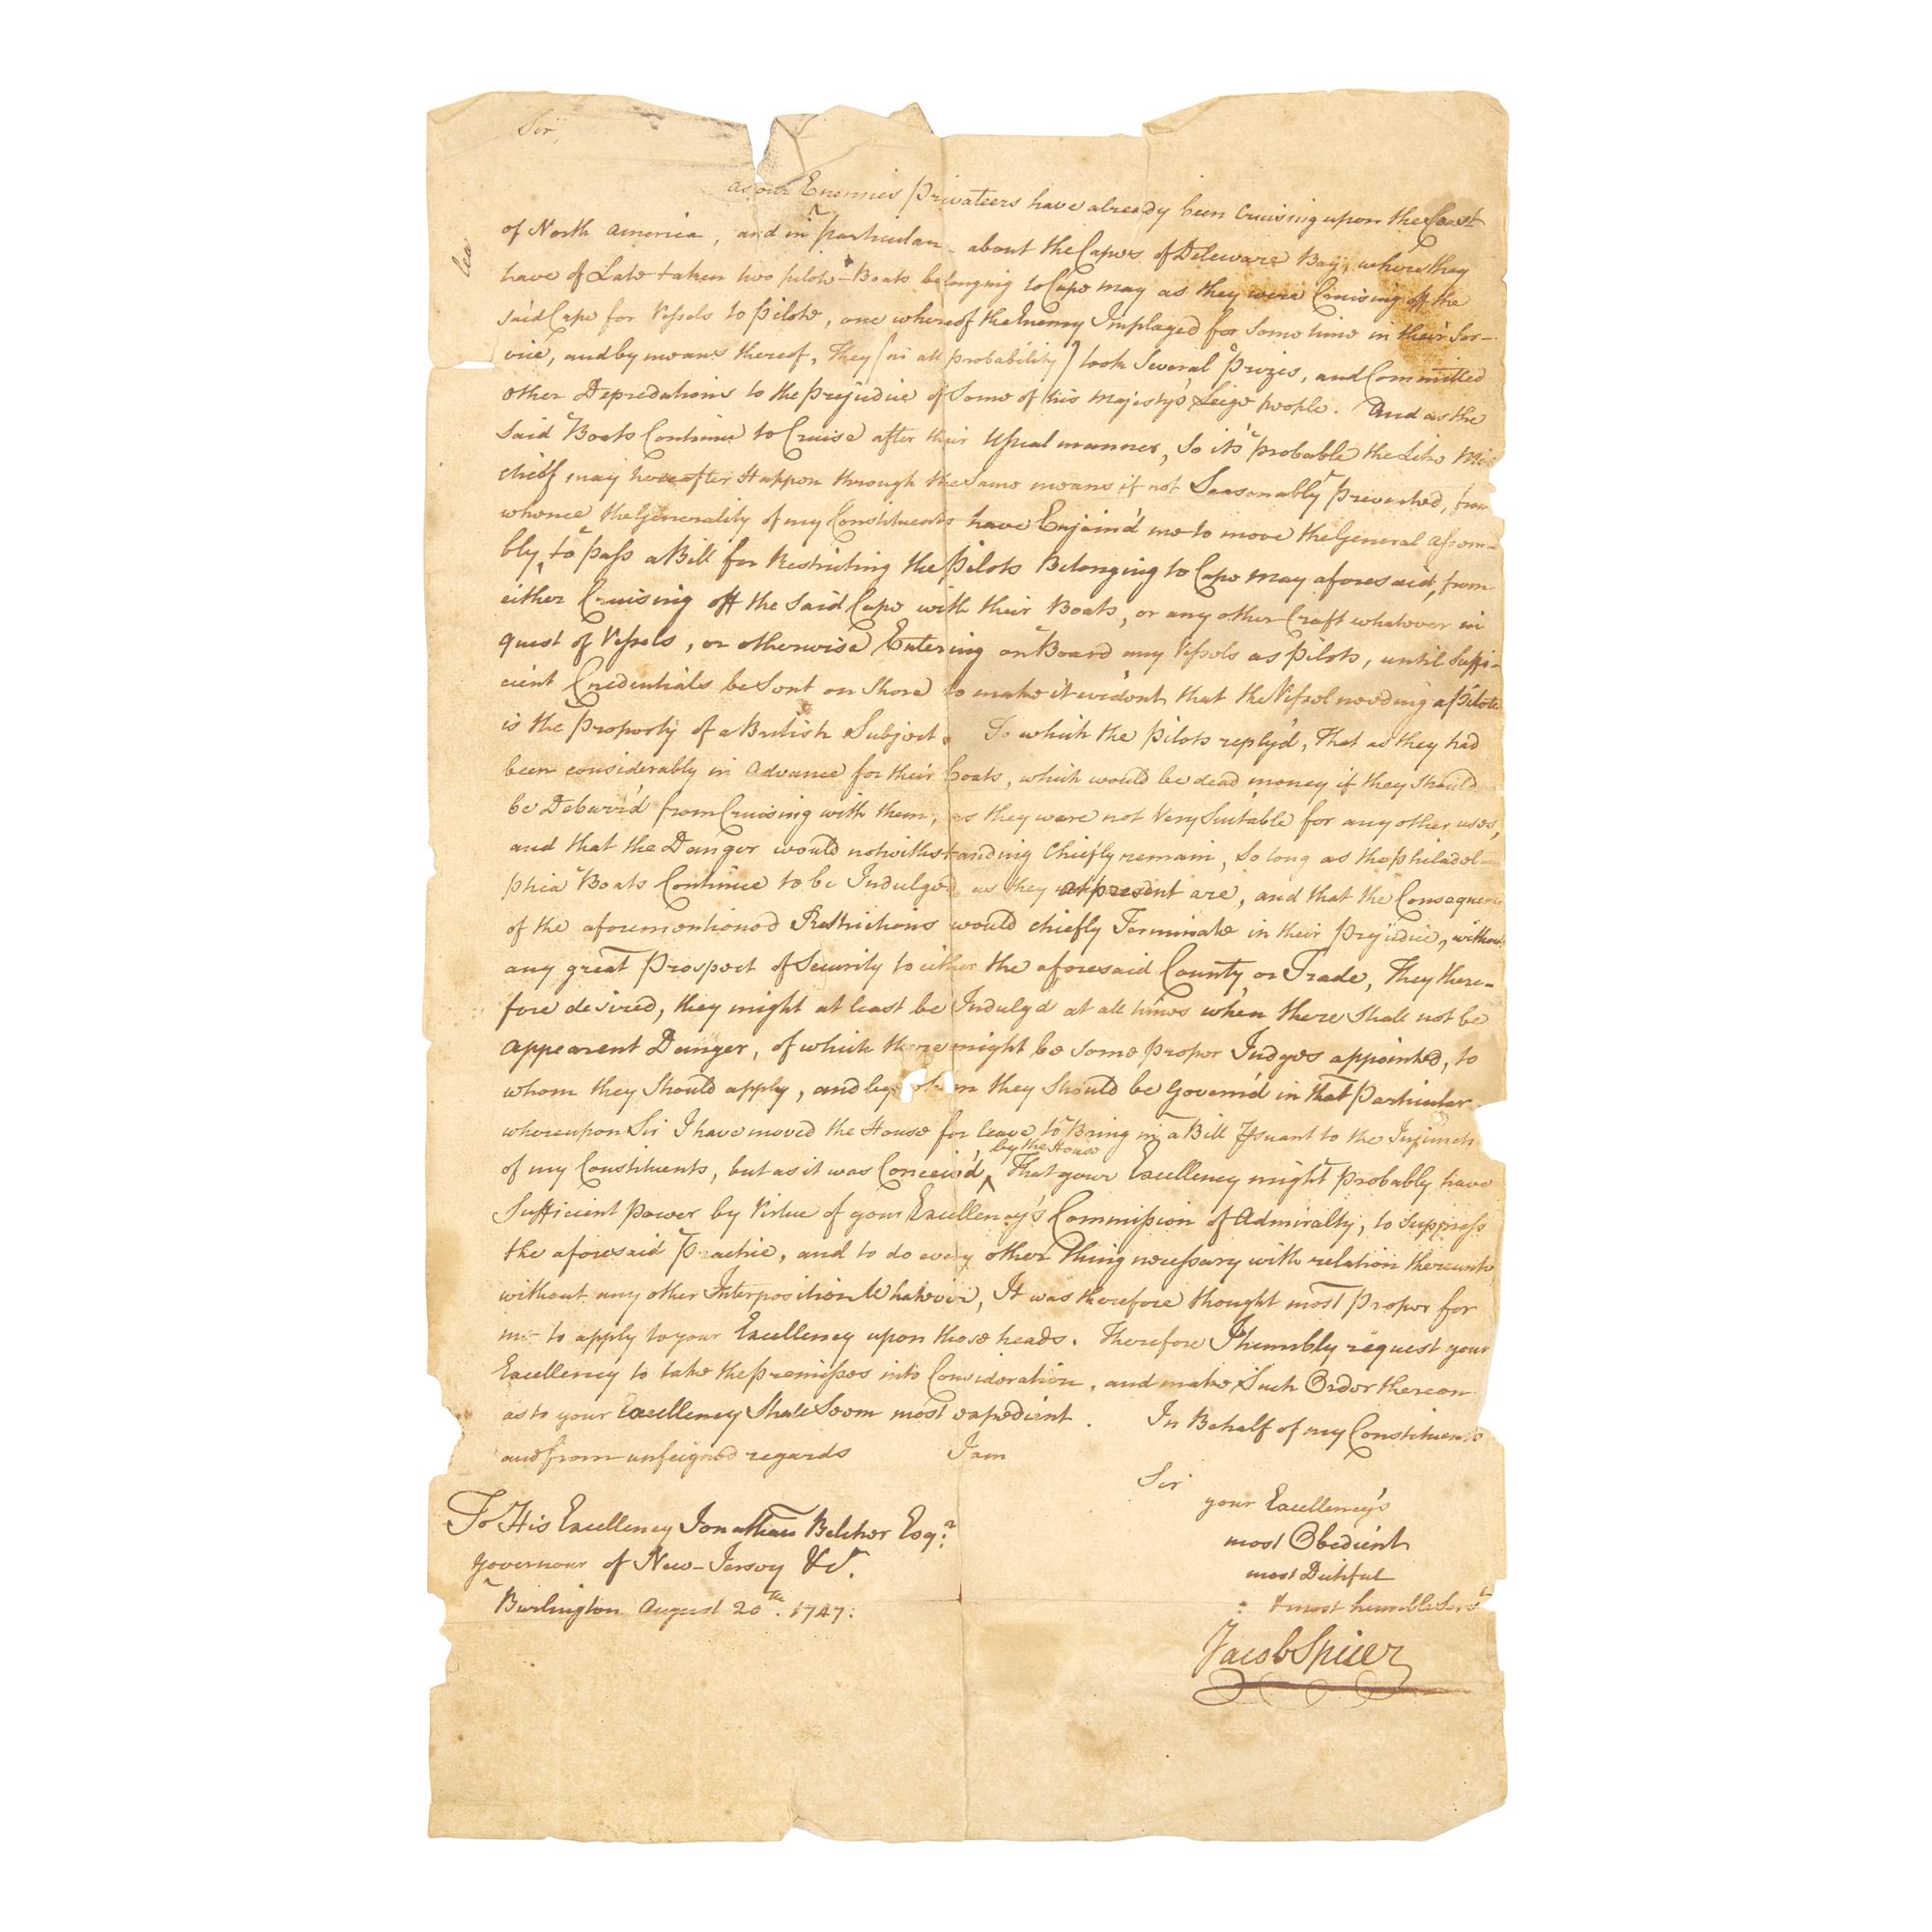 Sir,
as our Enemies Privateers have already been Cruising upon the Coast
of North America, and in particular about the Capes of Deleware Bay, where they
have of Late taken two pilote-Boats belonging to Cape May as they were Cruising off the
said Cape for Vessels to pilote, one whereof the Enemy Imployed for some time in their Ser-
vice, and by means thereof, They (in all probability) took Several Prizes, and Committed
other Depredations to the prejudice of Some of his Majesty's Leige people. And as the
said Boats Continue to Cruise after their Usual manner, So its probable the Like Mis
chief may hereafter Happen through the Same means if not Seasonably prevented, from
whence the Generality of my Constituents have Enjoin'd me to move the General assem-
bly, to pass a Bill for Restricting the Pilots Belonging to Cape May aforesaid, from
either Cruising off the said Cape with their Boats, or any other Craft whatever in
quest of Vessels, or otherwise Entering on Board any Vessels as Pilots, until Suffi-
cient Credentials be Sent on Shore to make it evident that the Vessel needing a Pilote
is the property of a British Subject. To which the Pilots reply'd, That as they had
been considerably in advance for their boats, which would be dead money if they should
be Debarr'd from Cruising with them, as they were not Very Suitable for any other uses,
and that the Danger would notwithstanding Chiefly remain, So long as the Philadel-
phia Boats Continue to be Indulged as they at present are, and that the Consequence
of the aforementioned Restrictions would chiefly Terminate in their prejudice, without
any great Prospect of Security to either the aforesaid County, or Trade, They there-
fore desired, they might at least be Indulg'd at all times when there Shall not be
appearent Danger, of which there might be some proper Judges appointed, to
whom they Should apply, and by whom they should be Govern'd in that Particular
whereupon Sir I have moved the House for leave to Bring in a Bill Pursuant to the Injuncts
by the House
of my Constituents, but as it was Conceiv'd, That your Excellency might probably have
Sufficient power by Virtue of your Excellency's Commission of Admiralty, to Suppress
the aforesaid Practice, and to do every other Thing necessary with relation thereunto
without any other Interposition Whatever, It was therefore thought most Proper for
me to apply to your Excellency upon those heads. Therefore I humbly request your
Excellency to take the premisses into Consideration, and make Such Order thereon
as to your Excellency Shall Seem most expedient. In Behalf of my Constituents
and from unfeigned regards I am
Sir
your Excellency's
most Obedient
most Dutiful
& most humble Servt
Jacob Spicer
To His Excellency Jonathan Belcher Esqr.
Governour of New-Jersey &c.
Burlington August 20th. 1747: